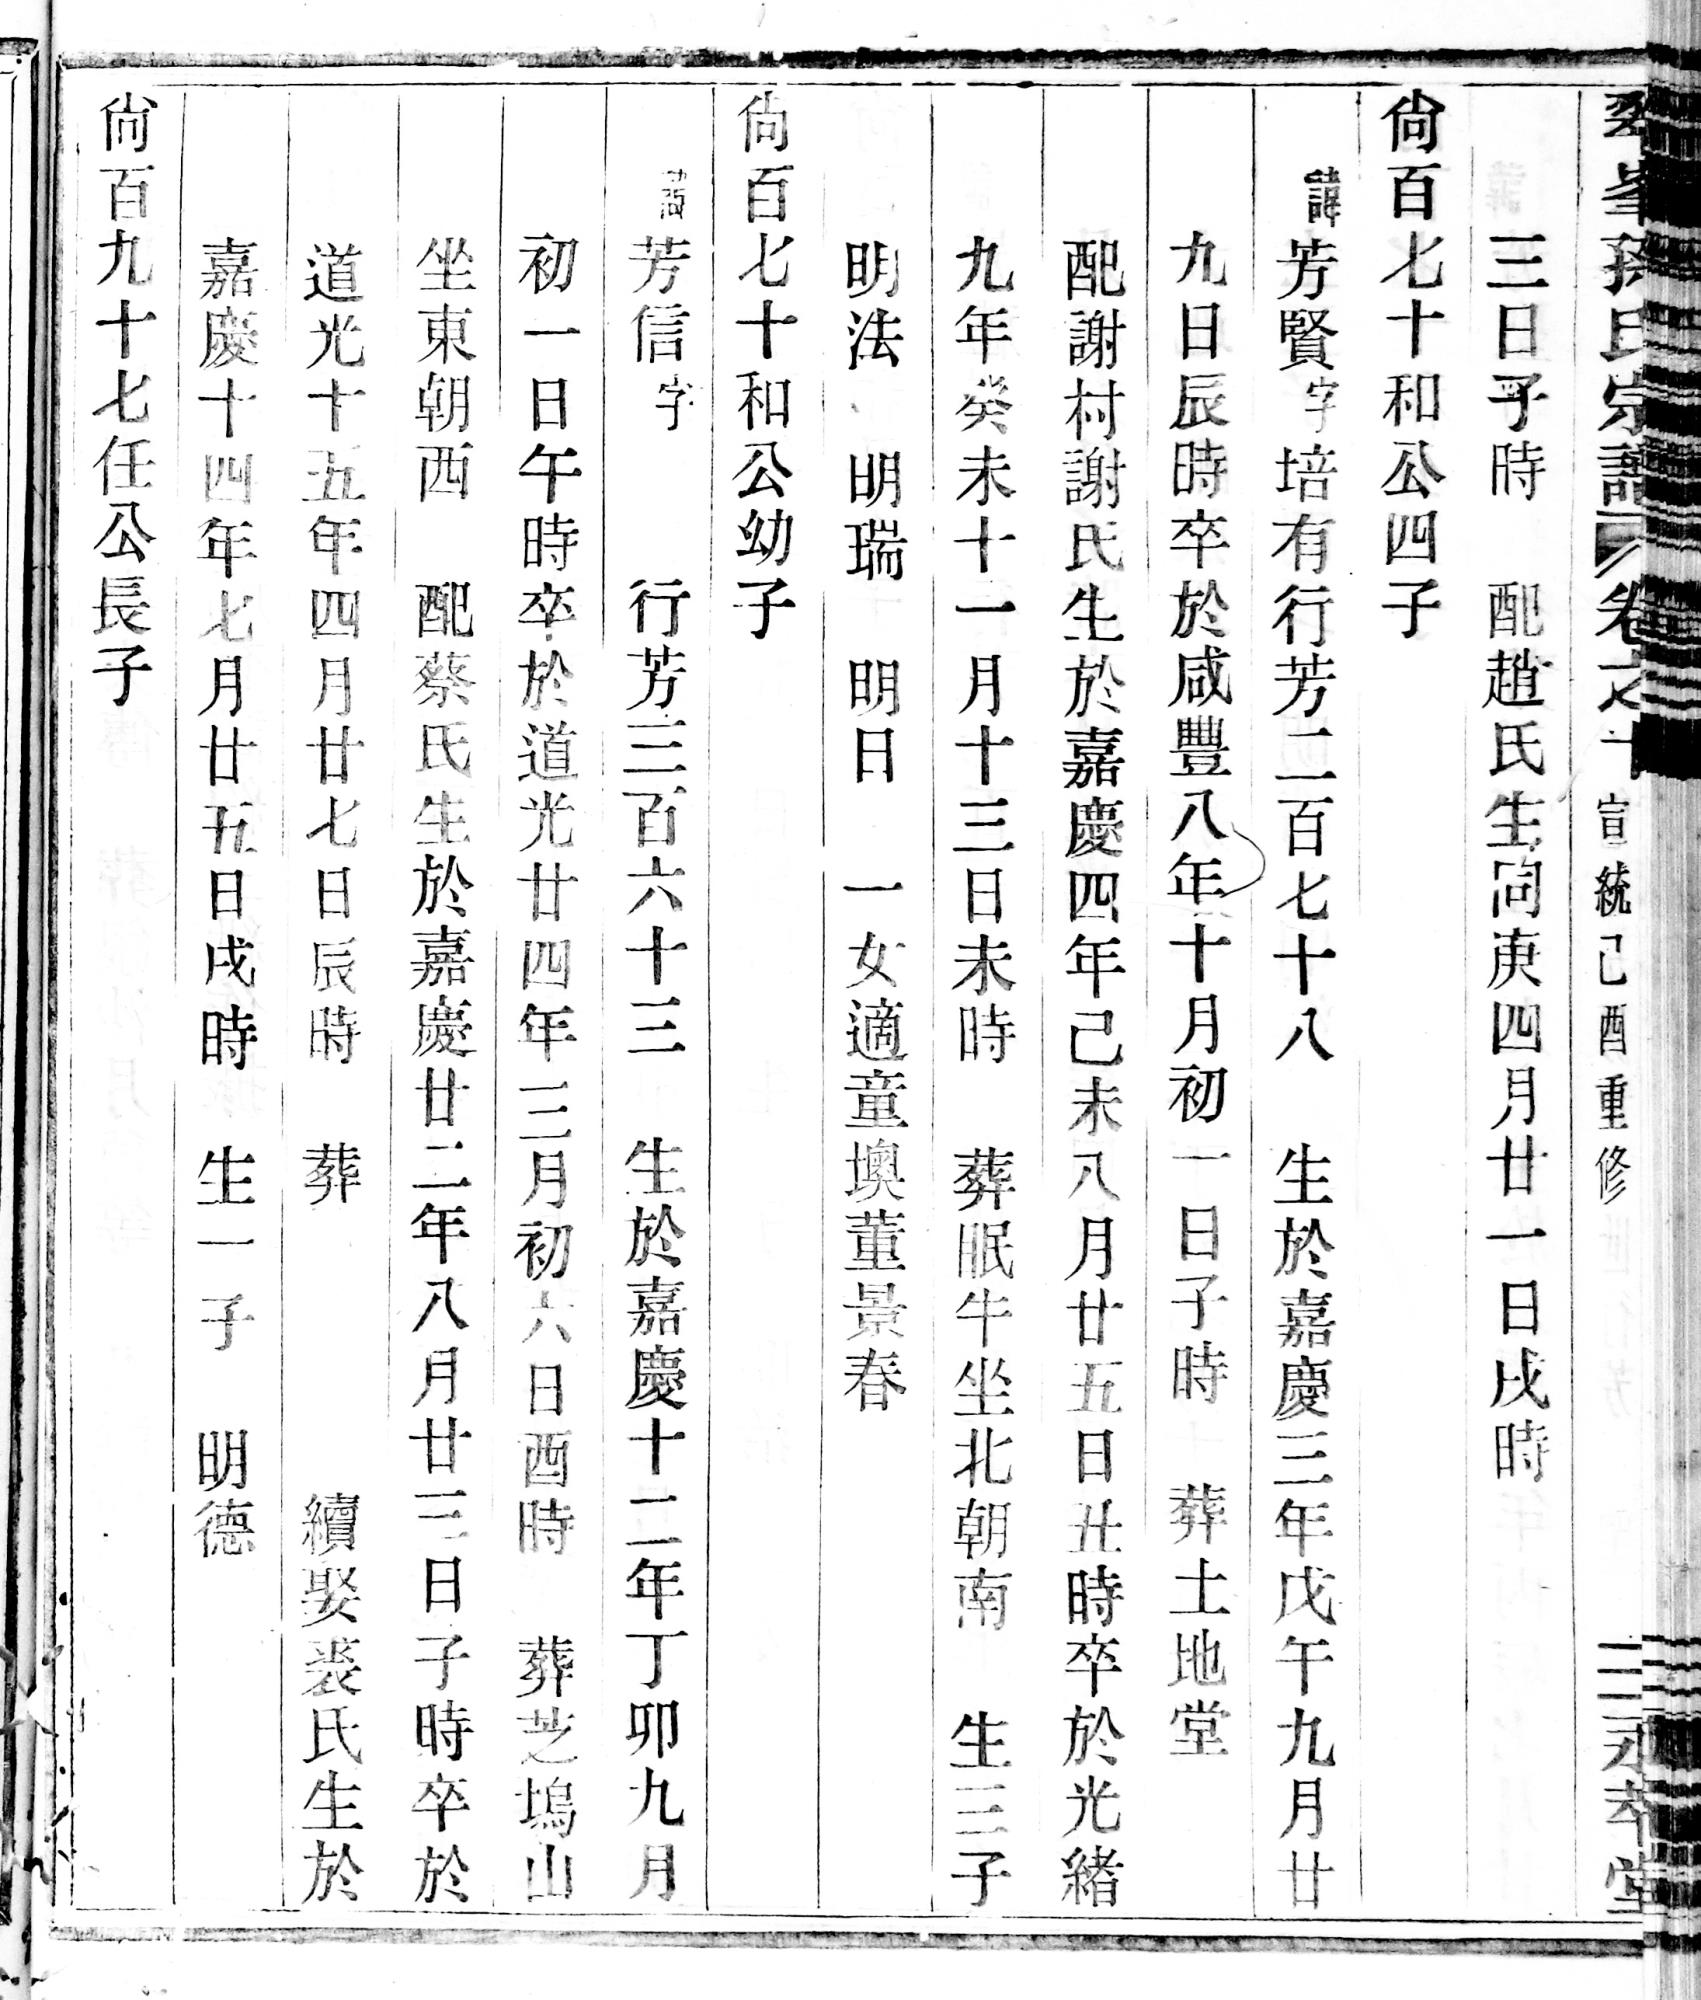 孫氏宗譜 卷之十 宣統己酉重修 二 永萃堂
三日子時 配趙氏生同庚四月廿一日戌時
尙百七十和公四子
諱芳賢字培有行芳二百七十八 生於嘉慶三年戊午九月廿
九日辰時卒於咸豐八年十月初一日子時 葬土地堂
配謝村謝氏生於嘉慶四年己未八月廿五日丑時卒於光緒
九年癸未十一月十三日未時 葬眠牛坐北朝南 生三子
明法 明瑞 明日 一女適童墺董景春
尙百七十和公幼子
諱芳信字 行芳三百六十三 生於嘉慶十二年丁卯九月
初一日午時卒於道光廿四年三月初六日酉時 葬芝塢山
坐東朝西 配蔡氏生於嘉慶廿二年八月廿三日子時卒於
道光十五年四月廿七日辰時 葬 續娶裘氏生於
嘉慶十四年七月廿五日戌時 生一子 明德
尙百九十七任公長子